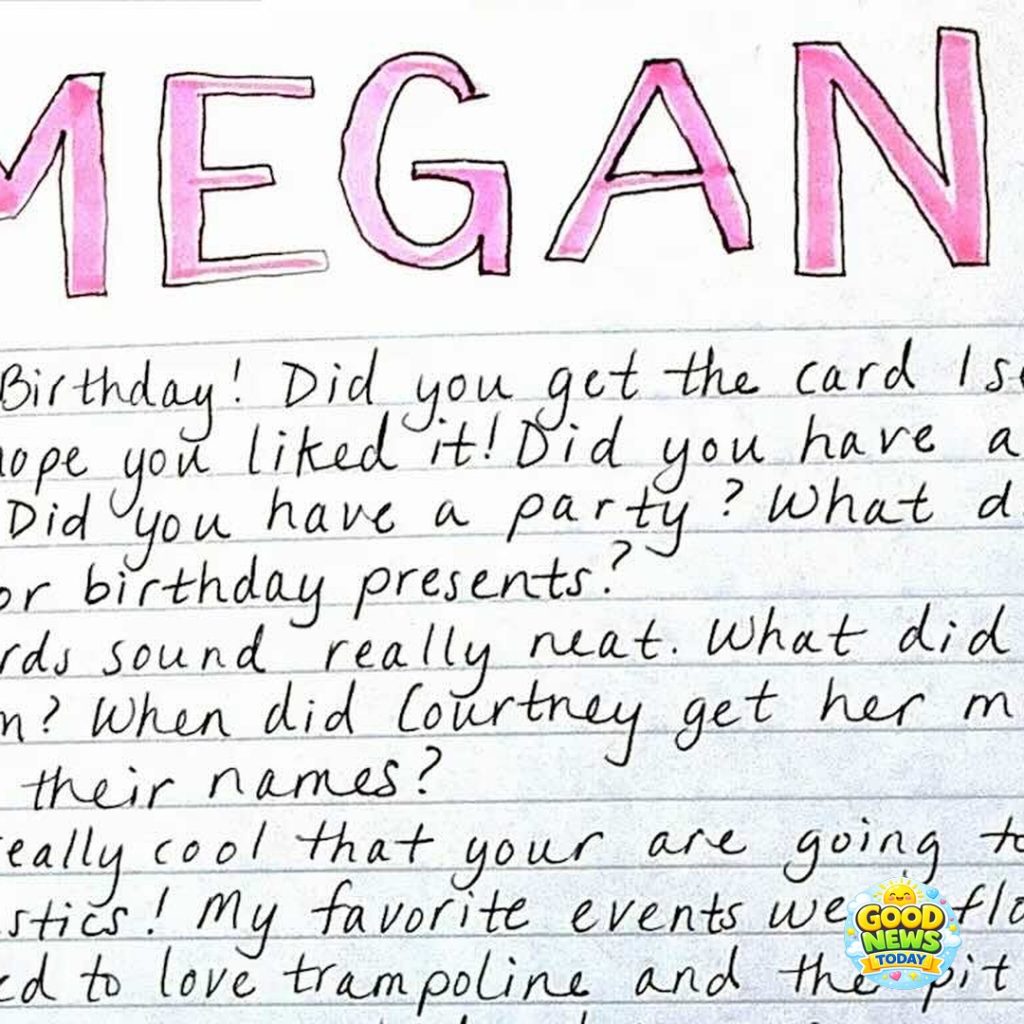 MEGAN
Birthday! Did you get the card I s
ope you liked it! Did you have a
Did you have a party? What d
or birthday presents?
rds sound really neat. What did
n? When did Courtney get her m
their names?
eally cool that your are going to
stics! My favorite events we flo
ed to love trampoline and the pit
GOOD
NEWS
TODAY